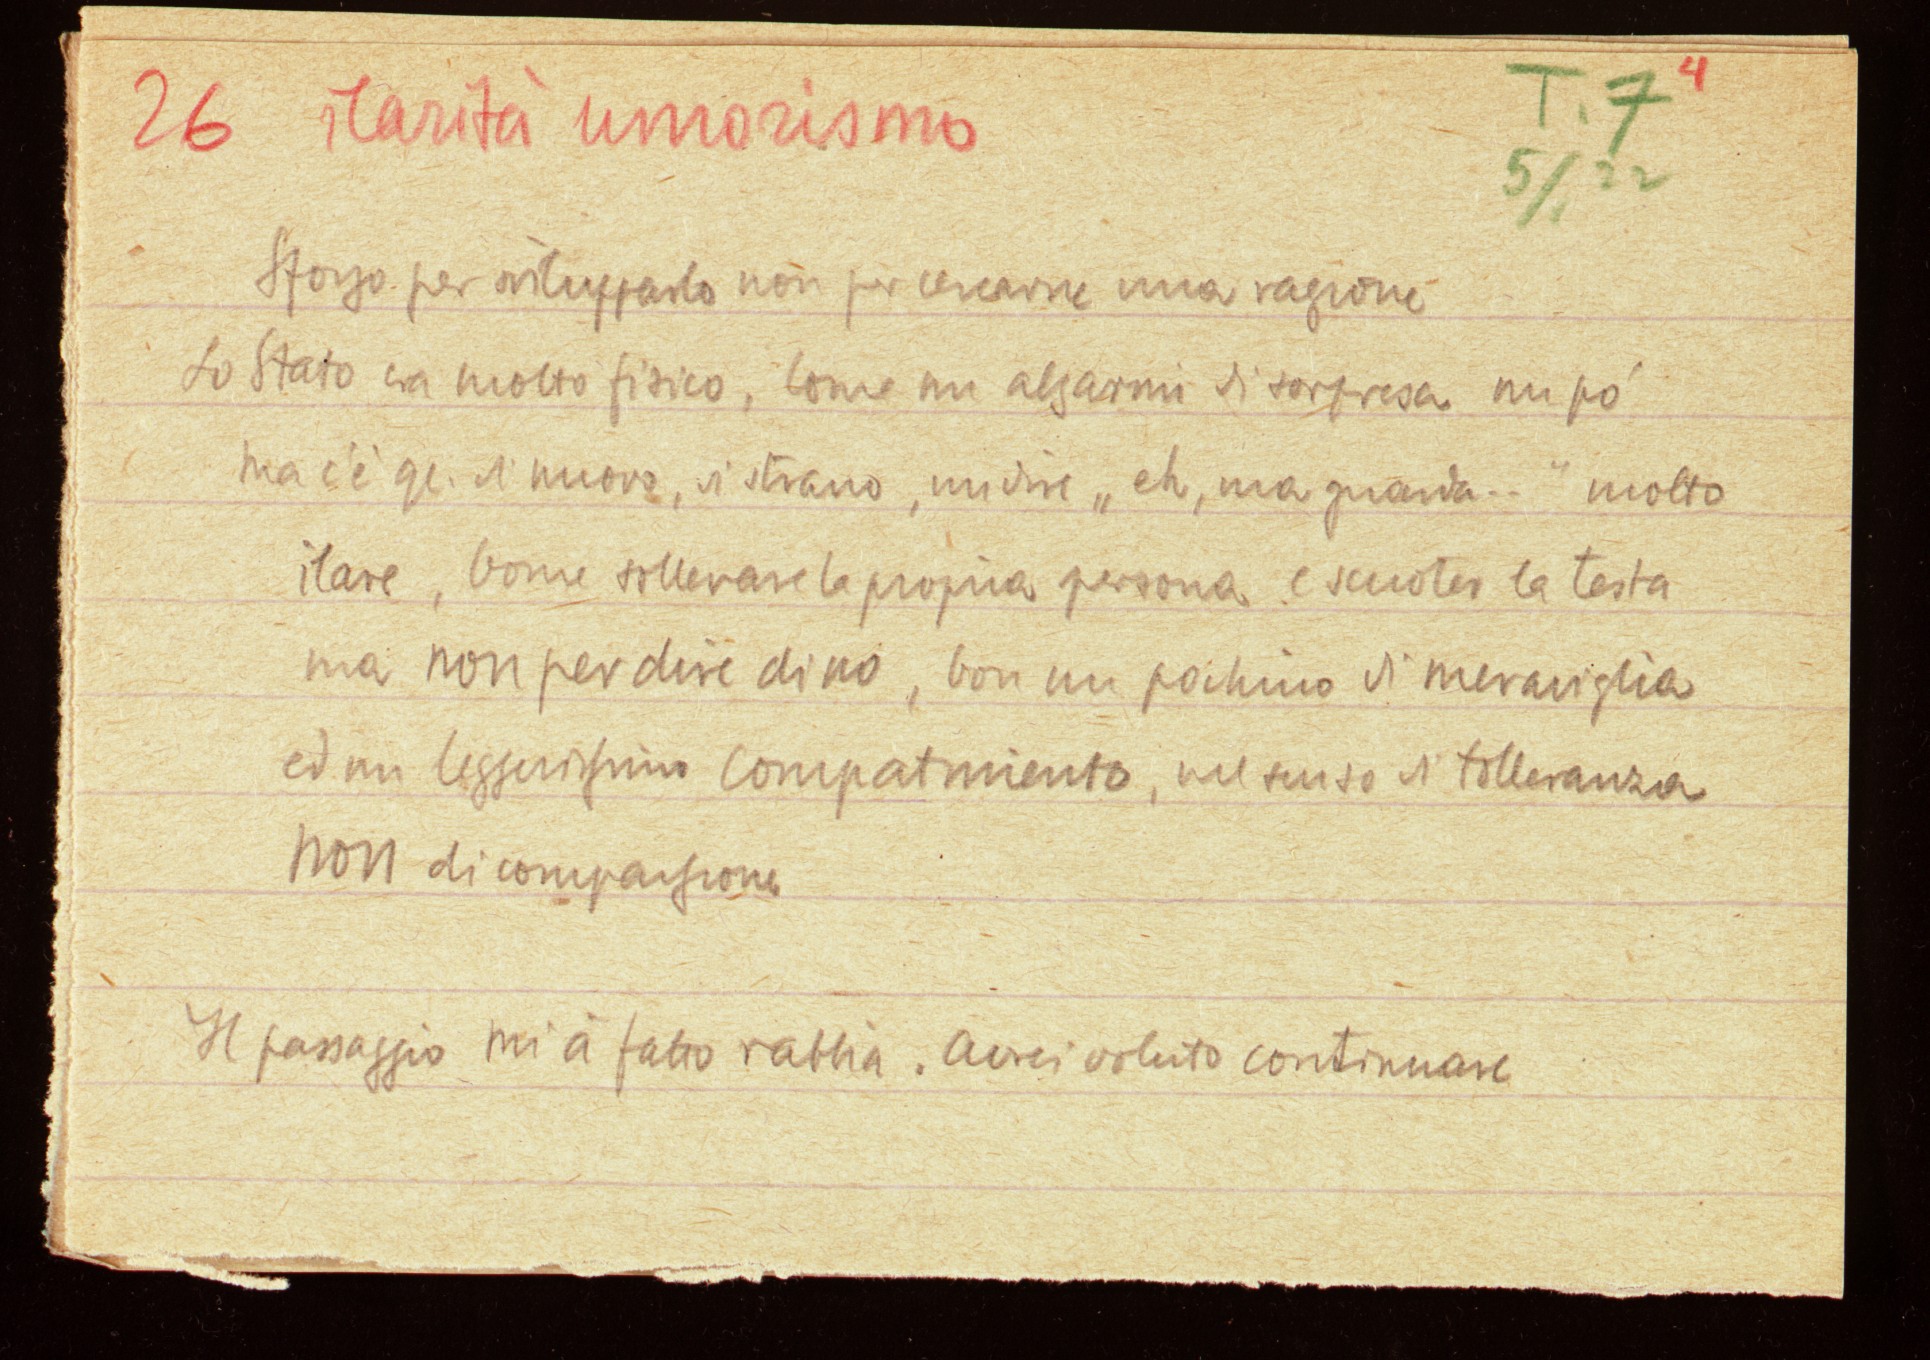 26 ilarità umorismo
T. 7 4
5/. 22
Sforzo per svilupparlo non per cercarne una ragione
Lo Stato era molto fisico, come un alzarmi di sorpresa un pó
ma c'è qc. di nuovo, di strano, un dire „eh, ma guarda.." molto
ilare, come sollevare la propria persona e scuoter la testa
ma non per dire di no, con un pochino di meraviglia
ed un leggerissimo compatimento, nel senso di tolleranza
non di compassione
Il passaggio mi à fatto rabbia. Avrei voluto continuare